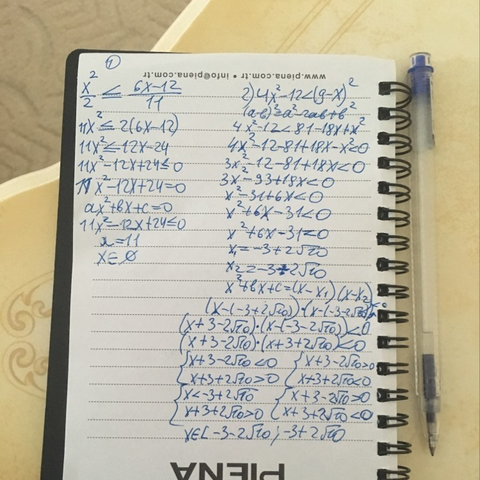 1
www.piena.com.tr • info@piena.com.tr
x²/2 ≤ 6x-12/11
11x² ≤ 2(6x-12)
11x² ≤ 12x-24
11x²-12x+24≤0
11x²-12x+24=0
ax²+bx+c=0
11x²-12x+24≤0
a=11
x∈∅
2) 4x²-12<(9-x)²
(a-b)²=a²-2ab+b²
4x²-12<81-18x+x²
4x²-12-81+18x-x²<0
3x²-12-81+18x<0
3x²-93+18x<0
x²-31+6x<0
x²+6x-31<0
x²+6x-31=0
x₁=-3+2√10
x₂=-3-2√10
x²+bx+c=(x-x₁)(x-x₂)
(x-(-3+2√10))·(x-(-3-2√10))<0
(x+3-2√10)·(x-(-3-2√10))<0
(x+3-2√10)·(x+3+2√10)<0
{x+3-2√10<0 {x+3-2√10>0
{x+3+2√10>0 {x+3+2√10<0
{x<-3+2√10 {x+3-2√10>0
{x+3+2√10>0 {x+3+2√10<0
x∈[-3-2√10; -3+2√10
PIENA